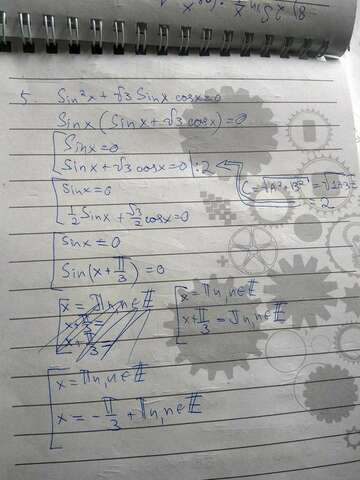 8) 2 sin x/2
5. Sin²x + √3 Sinx cosx = 0
Sinx (Sinx + √3 cosx) = 0
Sinx = 0
Sinx + √3 cosx = 0 | : 2 C = √A² + B² = √1+3 = 2
Sinx = 0
1/2 Sinx + √3/2 cosx = 0
Sinx = 0
Sin(x + π/3) = 0
x = πn, n ∈ Z x = πn, n ∈ Z
x + π/3 = x + π/3 = πn, n ∈ Z
x + π/3 =
x = πn, n ∈ Z
x = - π/3 + πn, n ∈ Z